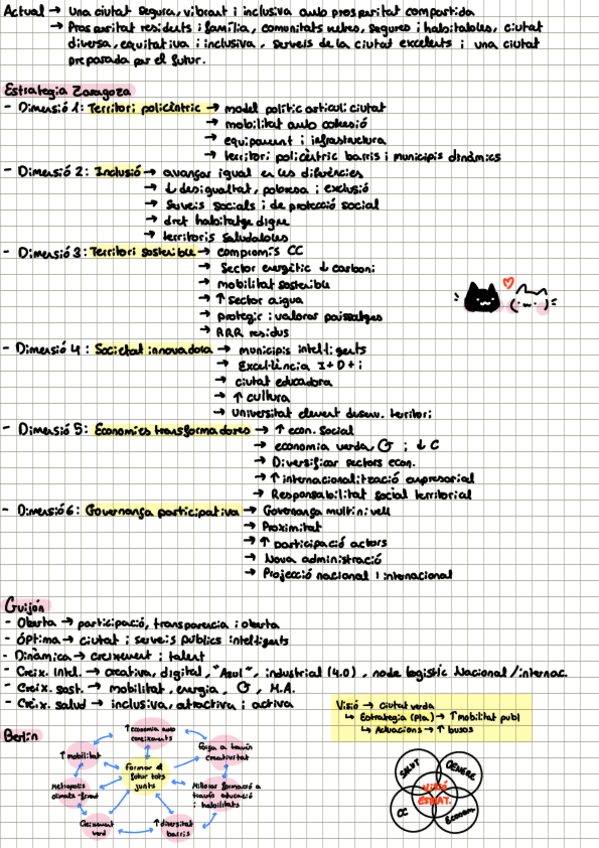 Actual → Una ciutat segura, vibrant i inclusiva amb prosperitat compartida
→ Prosperitat residents i família, comunitats netes, segures i habitables, ciutat
diversa, equitativa i inclusiva, serveis de la ciutat excelents i una ciutat
preparada per el futur.
Estrategia Zaragoza
- Dimensió 1: Territori policèntric → model polític articuli ciutat
→ mobilitat amb cohesió
→ equipament i infraestructura
→ territori policèntric barris i municipis dinàmics
- Dimensió 2: Inclusió → avançar igual en les diferències
→ ↓ desigualtat, pobresa i exclusió
→ Serveis socials i de protecció social
→ dret habitatge digne
→ territoris saludables
- Dimensió 3: Territori sostenible → compromís CC
→ Sector energètic ↓ carboni
→ mobilitat sostenible
→ ↑ Sector aigua
→ protegir i valorar paisatges
→ RRR residus
- Dimensió 4: Societat innovadora → municipis intel·ligents
→ Excel·lència I+D+i
→ ciutat educadora
→ ↑ cultura
→ Universitat element desenv. territori
- Dimensió 5: Economies transformadores → ↑ econ. social
→ economia verda, i ↓ C
→ Diversificar sectors econ.
→ ↑ internacionalització empresarial
→ Responsabilitat social territorial
- Dimensió 6: Governança participativa → Governança multinivell
→ Proximitat
→ ↑ participació actors
→ Nova administració
→ Projecció nacional i internacional
Guijón
- Oberta → participació, transparencia i oberta
- Óptima → ciutat i serveis públics intel·ligents
- Dinàmica → creixement i talent
- Creix. Intel. → creativa, digital, "Azul", industrial (4.0), node logístic Nacional/internac.
- Creix. sost. → mobilitat, energia, M.A.
- Creix. salud → inclusiva, atractiva i activa
Visió → ciutat verda
↳ Estrategia (Pla) → ↑ mobilitat públ
↳ Actuacions → ↑ busos
Berlín
↑ economia amb coneixements
Força a través creativitat
Millorar formació a través educació i habilitats
↑ diversitat barris
Creixement verd
Metropolis climate-friend
↑ mobilitat
Formar el futur tots junts
SALUT
GENERE
VISIÓ
ESPAT.
CC
Econom